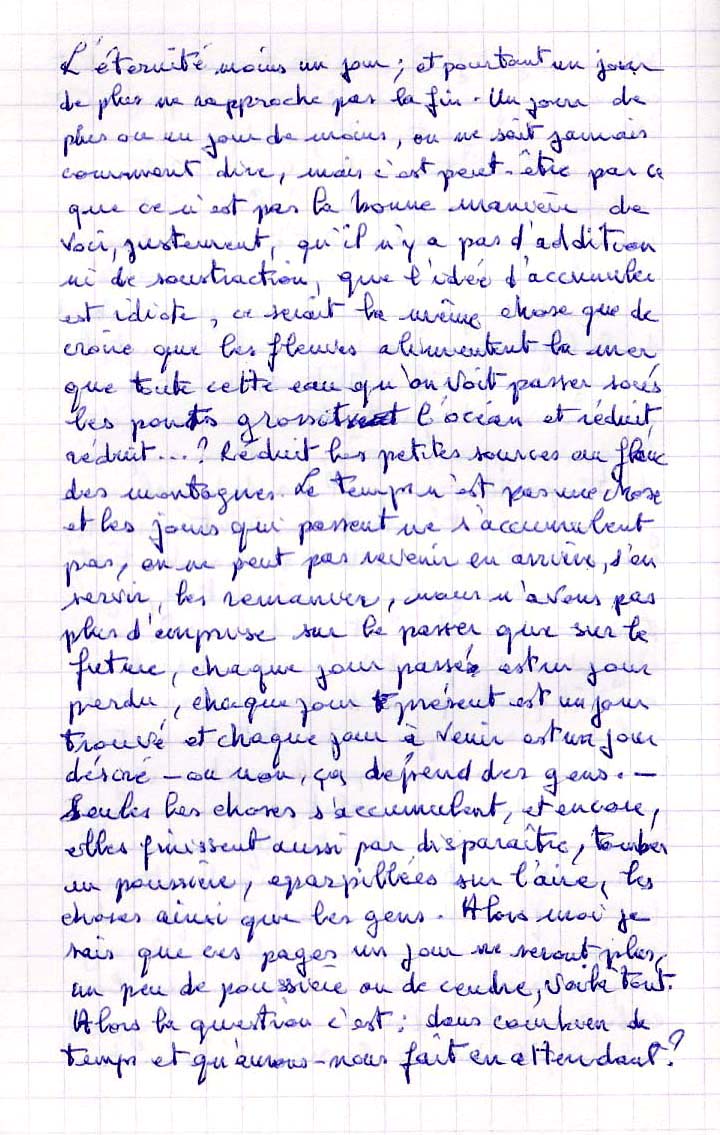 L'éternité moins un jour ; et pourtant un jour
de plus ne rapproche pas la fin. Un jour de
plus ou un jour de moins, on ne sait jamais
comment dire, mais c'est peut-être par ce
que ce n'est pas la bonne manière de
voir, justement, qu'il n'y a pas d'addition
ni de soustraction, que l'idée d'accumuler
est idiote, ce serait la même chose que de
croire que les fleuves alimentent la mer
que toute cette eau qu'on voit passer sous
les ponts grossit l'océan et réduit,
réduit...? Réduit les petites sources au flanc
des montagnes. Le temps n'est pas une chose
et les jours qui passent ne s'accumulent
pas, on ne peut pas revenir en arrière, s'en
servir, les remanier, nous n'avons pas
plus d'emprise sur le passer que sur le
future, chaque jour passé est un jour
perdu, chaque jour présent est un jour
trouvé et chaque jour à venir est un jour
désiré - ou non, ça dépend des gens. -
Seules les choses s'accumulent, et encore,
elles finissent aussi par disparaître, tomber
en poussière, éparpillées sur l'aire, les
choses ainsi que les gens. Alors moi je
sais que ces pages un jour ne seront plus,
un peu de poussière ou de cendre, voilà tout.
Alors la question c'est : dans combien de
temps et qu'aurons-nous fait en attendant ?